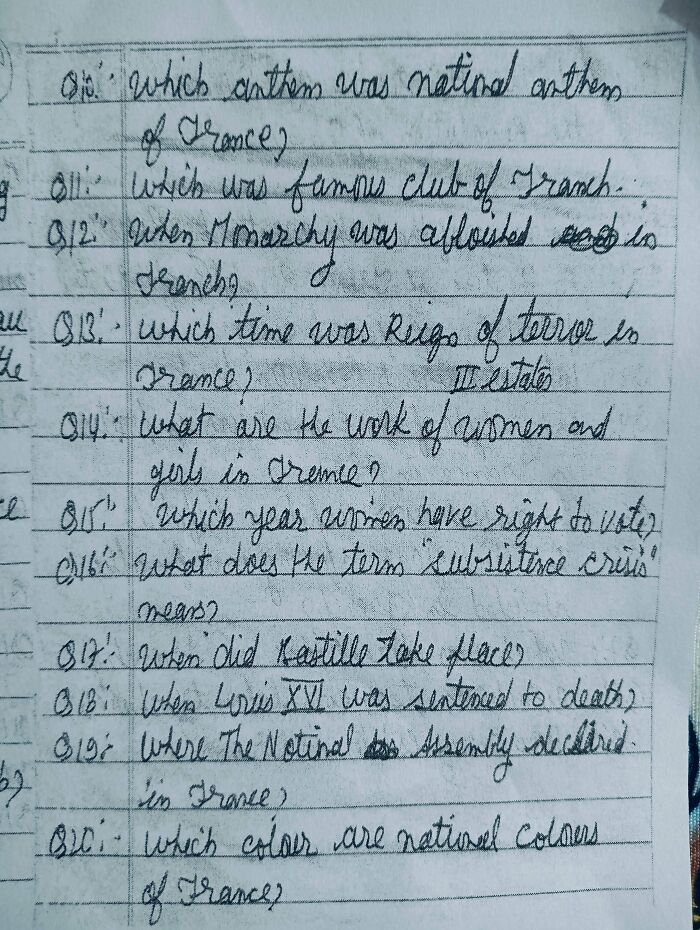 Q10:- Which anthem was national anthem
of France?
Q11:- Which was famous club of Franch.
Q12:- When Monarchy was abloished in
Franch?
Q13:- Which time was Reign of terror in
France?
III estates
Q14:- What are the work of women and
girls in France?
Q15:- Which year women have right to vote?
Q16:- What does the term "subsistence crisis"
means?
Q17:- When did Bastille take place?
Q18:- When Louis XVI was sentenced to death?
Q19:- Where The Notinal Assembly declared
in France?
Q20:- Which colour are national colours
of France?
au
the
ce